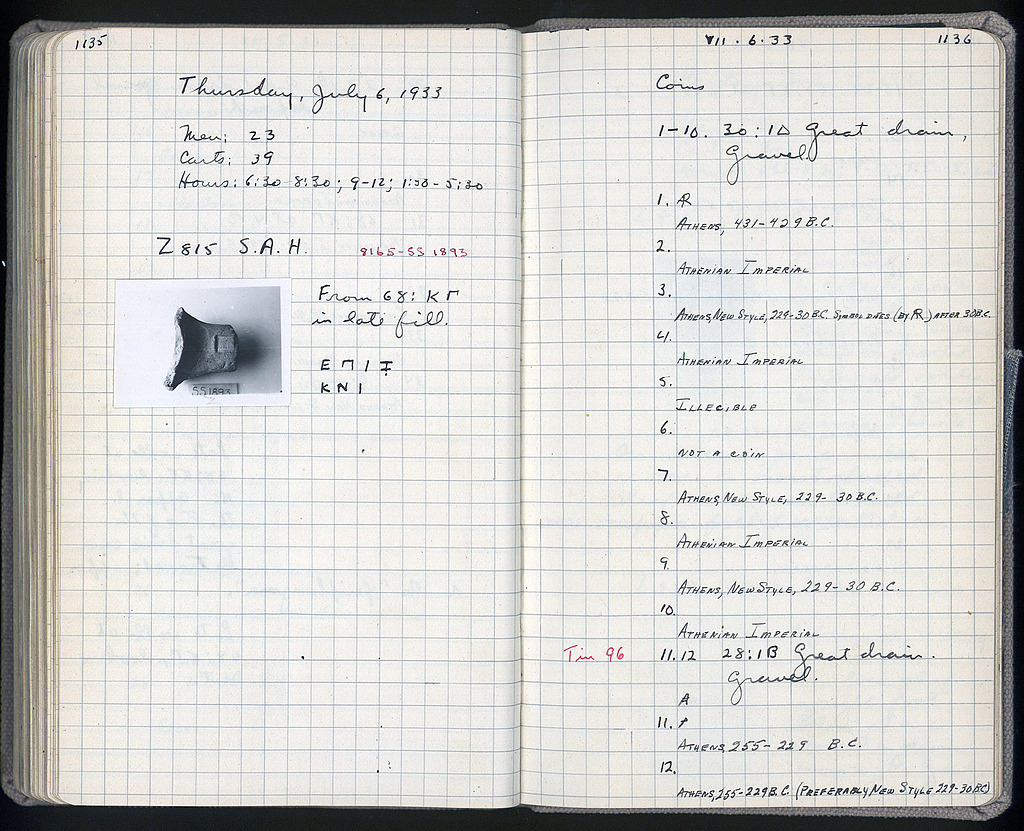 1135
Thursday, July 6, 1933
Men: 23
Carts: 39
Hours: 6:30-8:30; 9-12; 1:30-5:30
Z 815 S.A.H. 8165-SS 1893
From 68: ΚΓ
in late fill.
SS1893
ΕΠΙ
ΚΝΙ
VII.6.33 1136
Coins
1-10. 30:1Δ Great drain,
Gravel.
1. AR
ATHENS, 431-429 B.C.
2.
ATHENIAN IMPERIAL
3.
ATHENS, NEW STYLE, 229-30 B.C. SYMBOL DATES (BY AR) AFTER 30 B.C.
4.
ATHENIAN IMPERIAL
5.
ILLEGIBLE
6.
NOT A COIN
7.
ATHENS, NEW STYLE, 229-30 B.C.
8.
ATHENIAN IMPERIAL
9.
ATHENS, NEW STYLE, 229-30 B.C.
10.
ATHENIAN IMPERIAL
Tin 96 11.12 28:1B Great drain.
Gravel.
A
11.
ATHENS, 255-229 B.C.
12.
ATHENS, 255-229 B.C. (PREFERABLY NEW STYLE 229-30 BC)